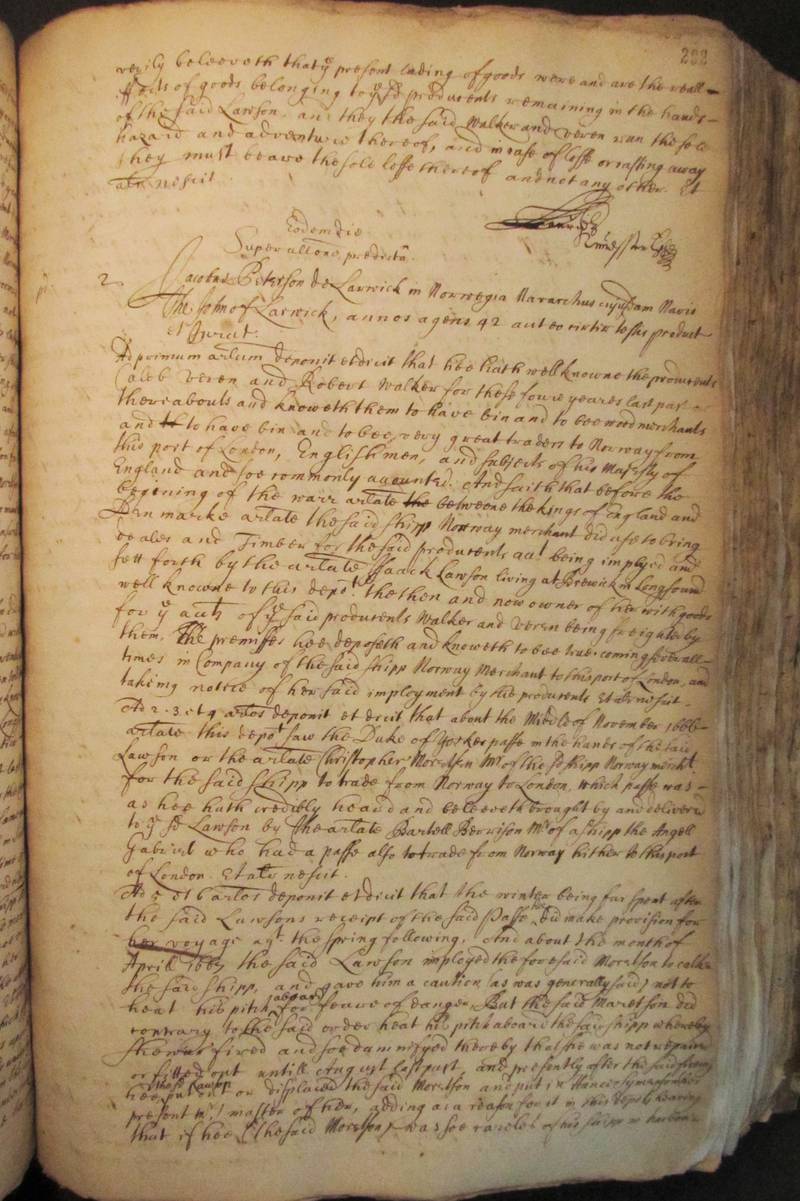 232
verily beleeveth that ye present lading of goods were and are the reall
effects of goods belonging to ye sd producents remaining in the hands
of the said Lawson, and they the said Walker and Veren run the sole
hazard and adventure thereof, and in case of losse or casting away
they must beare the sole losse thereof and not any other. Et
alr nescit
Eodem die
Super allone predicta
2
Jacobus Peterson de Larwick in Norwegia Navarchus cujusdam Navis
The John of Larwick, annos agens 42 aut eo circiter testis product
et jurat.
Ad primum arlum deponit et dicit that hee hath well knowne the producents
Caleb Veren and Robert Walker for these foure yeares last past
thereabouts and knoweth them to have bin and to bee wood merchants
and to have bin and to bee very great traders to Norway from
this port of London, Englishmen, and subjects of his Majesty of
England and soe commonly accounted. And saith that before the
begining of the warr arlate the betweene the kings of England and
Denmarke arlate the said shipp Norway merchant did use to bring
deales and Timber for the said producents acct being imployed and
sett forth by the arlate Isaack Lawson living at Brewick in Longsound
well knowne to this depot the then and now owner of her with goods
for ye acct of ye said producents Walker and Veren being freighted by
them, The premisses hee deposeth and knoweth to bee true coming severall
times in Company of the said shipp Norway Merchant to this port of London, and
taking notice of her said imployment by the producents Et alr nescit.
Ad 2. 3. et 4 arlos deponit et dicit that about the Middle of November 1666
arlate this depot saw the Duke of Yorkes passe in the hands of the said
Lawson or the arlate Christopher Moretson Mr of the sd shipp Norway mercht
for the said shipp to trade from Norway to London, which passe was
as hee hath credibly heard and beleeveth brought by and delivered
to ye sd Lawson by the arlate Bartell Berrison Mr of a shipp the Angell
Gabriel who had a passe also to trade from Norway hither to this port
of London. Et alr nescit.
Ad 5 et 6 arlos deponit et dicit that the winter being far spent after
the said Lawsons receipt of the said Passe hee did make provision for
her voyage agt the Spring following, And about the month of
Aprill 1667 the said Lawson imployed the foresaid Moretson to calke
the said shipp, and gave him a caution (as was generally said) not to
heat his pitch aboard for feare of danger, But the said Moretson did
contrary to the said order heat his pitch aboard the said shipp whereby
shee was fired and soe damnifyed thereby that shee was not repaired
or fitted out untill August last past, and presently after the said fireing
hee the sd Lawson put out or displaced the said Moretson and put in
present Mr master of her, adding as a reason for it in this depots hearing
that if hee (the said Moretson) was soe careles of his shipp in harbour